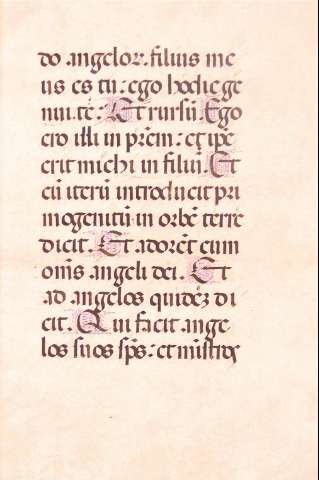 do angelor̄. filius me
us es tu: ego hodie ge
nui te: Et rursū. Ego
ero illi in prēm: et ip̄e
erit michi in filiū. Et
cū iterū introducit pri
mogenitū in orbē terre
dicit. Et adorēt eum
om̄s angeli dei. Et
ad angelos quidēz di
cit. Qui facit ange
los suos sp̄s: et mīstros